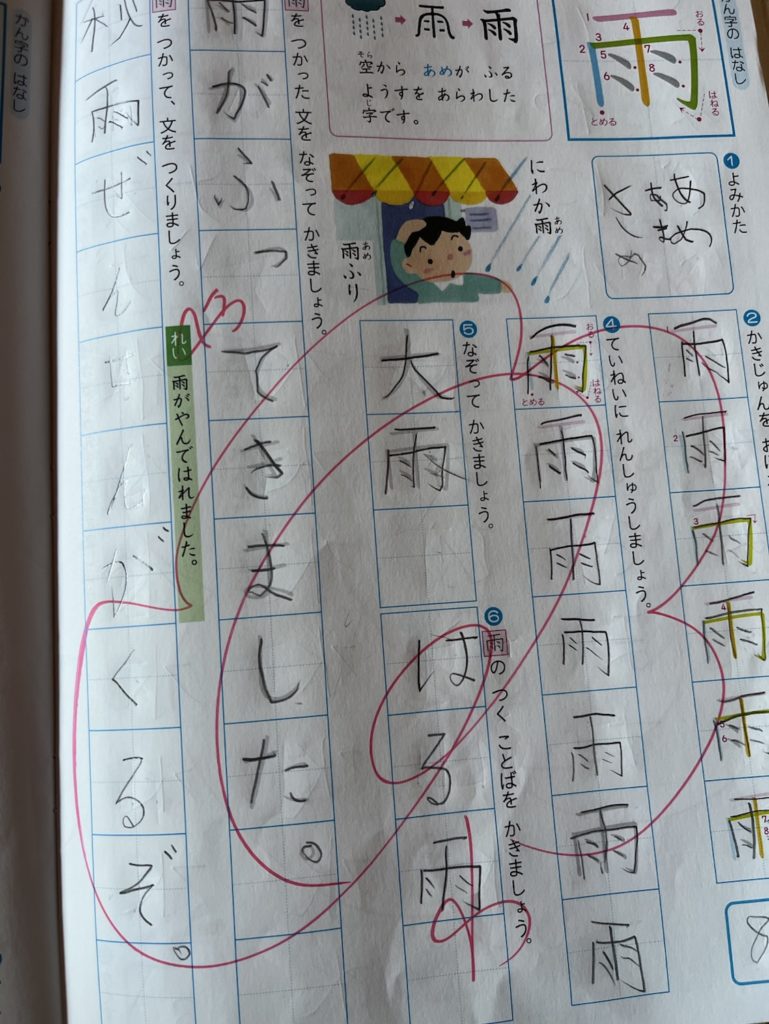 かん字の はなし
1
2
3
4
5
6
7
8
おる
はねる
とめる
雨
① よみかた
あめ
あま
さめ
② かきじゅんを
雨
雨
雨
雨
雨
雨
8
④ ていねいに れんしゅうしましょう。
おる
はねる
とめる
雨
雨
雨
雨
雨
雨
雨
雨 → 雨
空から あめが ふる
そら
ようすを あらわした
字です。
じ
にわか雨
あめ
雨ふり
あめ
⑤ なぞって かきましょう。
大雨
⑥ 雨の つく ことばを かきましょう。
はる雨
雨を つかった 文を なぞって かきましょう。
雨がふってきました。
雨を つかって、文を つくりましょう。
れい 雨がやんではれました。
秋雨ぜんせんがくるぞ。
かん字の はなし